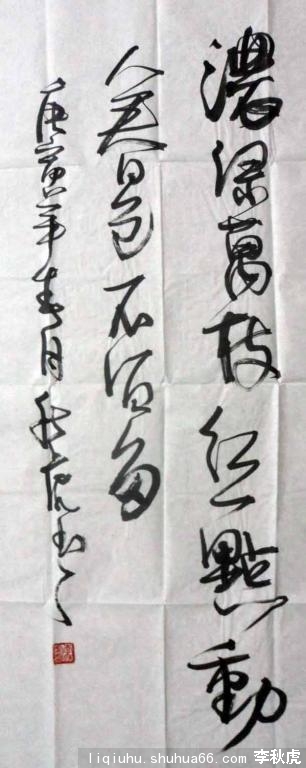 濃綠萬枝紅一點動
人春色不須多
庚寅年春月秋虎
liqiuhu.shuhua66.com 李秋虎